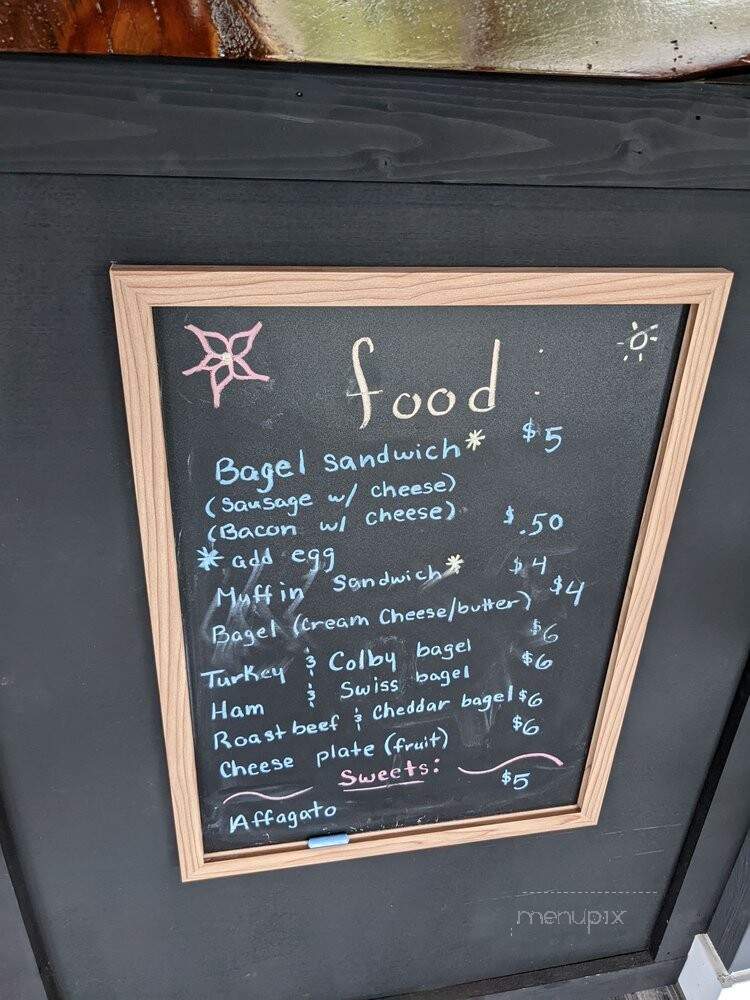 food :
Bagel sandwich* $5
(Sausage w/ cheese)
(Bacon w/ cheese)
* add egg $.50
Muffin Sandwich* $4
Bagel (Cream Cheese/butter) $4
Turkey & Colby bagel $6
Ham & Swiss bagel $6
Roast beef & Cheddar bagel $6
Cheese plate (fruit) $6
Sweets:
Affagato $5
menupix